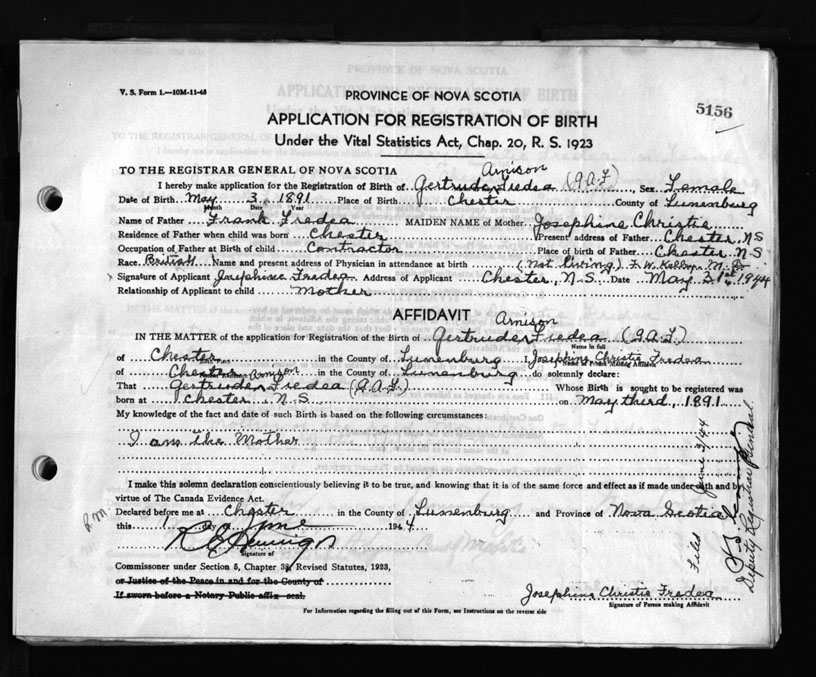 V. S. Form 1.—10M-11-43
PROVINCE OF NOVA SCOTIA
5156
APPLICATION FOR REGISTRATION OF BIRTH
Under the Vital Statistics Act, Chap. 20, R. S. 1923
TO THE REGISTRAR GENERAL OF NOVA SCOTIA
Arnison
I hereby make application for the Registration of Birth of Gertrude Fredea (G.A.F.) Sex Female
Date of Birth May 3 1891 Place of Birth Chester County of Lunenburg
Month Date Year
Name of Father Frank Fredea MAIDEN NAME of Mother Josephine Christie
Residence of Father when child was born Chester Present address of Father Chester, N S
Occupation of Father at Birth of child Contractor Place of birth of Father Chester N S
Race British Name and present address of Physician in attendance at birth (Not Living) F. W. M. D.
Signature of Applicant Josephine Fredea Address of Applicant Chester, N. S. Date May 31st 1944
Relationship of Applicant to child Mother
AFFIDAVIT
Arnison
IN THE MATTER of the application for Registration of the Birth of Gertrude Fredea (G.A.F.)
Name in full
of Chester in the County of Lunenburg I, Josephine Christie Fredea
Person Making Affidavit
of Chester in the County of Lunenburg do solemnly declare:
Arnison
That Gertrude Fredea (G.A.F.) Whose Birth is sought to be registered was
born at Chester N. S. on May third, 1891
My knowledge of the fact and date of such Birth is based on the following circumstances:
I am the Mother
I make this solemn declaration conscientiously believing it to be true, and knowing that it is of the same force and effect as if made under oath and by
virtue of The Canada Evidence Act.
Declared before me at Chester in the County of Lunenburg and Province of Nova Scotia
this 1 day of June 1944
R.M.
Signature of
Commissioner under Section 5, Chapter 33, Revised Statutes, 1923,
or Justice of the Peace in and for the County of
If sworn before a Notary Public affix seal.
Josephine Christie Fredea
Signature of Person making Affidavit
For Information regarding the filling out of this Form, see Instructions on the reverse side
Filed June 3/44
Deputy Registrar General